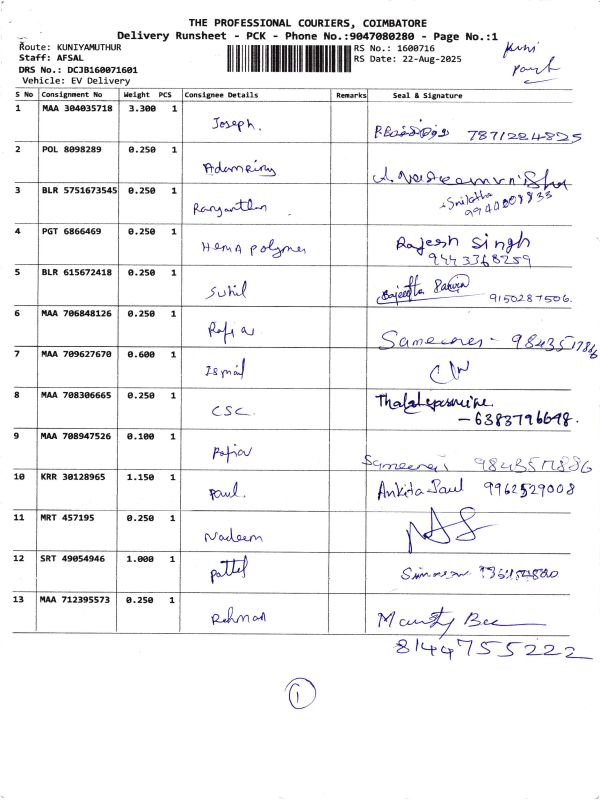 THE PROFESSIONAL COURIERS, COIMBATORE
Delivery Runsheet - PCK - Phone No.:9047080280 - Page No.:1
Route: KUNIYAMUTHUR
RS No.: 1600716
Staff: AFSAL
RS Date: 22-Aug-2025
DRS No.: DCJB160071601
Vehicle: EV Delivery
S No Consignment No Weight PCS Consignee Details Remarks Seal & Signature
1 MAA 304035718 3.300 1 Joseph. 7871224825
2 POL 8098289 0.250 1
3 BLR 5751673545 0.250 1 9940008833
4 PGT 6866469 0.250 1 HEMA polymer Rajesh Singh
9443368259
5 BLR 615672418 0.250 1 Suhil 9150287506.
6 MAA 706848126 0.250 1
7 MAA 709627670 0.600 1 Ismail
8 MAA 708306665 0.250 1 CSC.
- 6383796648.
9 MAA 708947526 0.100 1
10 KRR 30128965 1.150 1 Paul. Ankita Paul 9962529008
11 MRT 457195 0.250 1 Nadeem
12 SRT 49054946 1.000 1
13 MAA 712395573 0.250 1 Rehman
8144755222
1